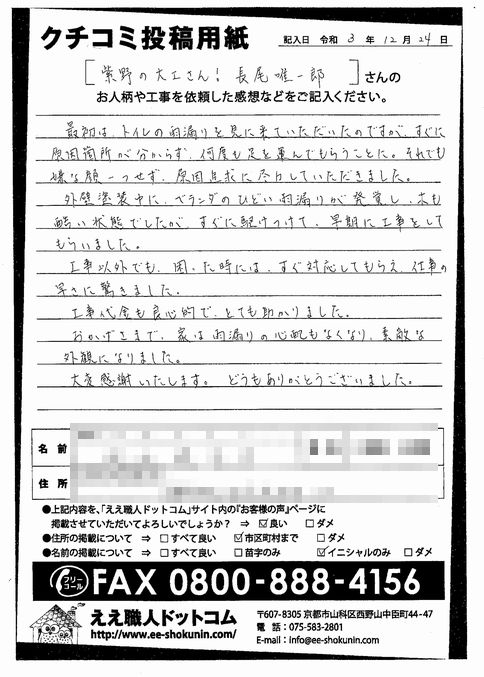 クチコミ投稿用紙
記入日 令和 3 年 12 月 24 日
[紫野の大工さん! 長尾唯一郎]さんの
お人柄や工事を依頼した感想などをご記入ください。
最初は、トイレの雨漏りを見に来ていただいたのですが、すぐに
原因箇所が分からず、何度も足を運んでもらうことに。それでも
嫌な顔一つせず、原因追求に尽力していただきました。
外壁塗装中に、ベランダのひどい雨漏りが発覚し、木も
酷い状態でしたが、すぐに駆けつけて、早期に工事をして
もらいました。
工事以外でも、困った時には、すぐ対応してもらえ、仕事の
早さに驚きました。
工事代金も良心的で、とても助かりました。
おかげさまで、家は雨漏りの心配もなくなり、素敵な
外観になりました。
大変感謝いたします。 どうもありがとうございました。
名前
住所
●上記内容を、「ええ職人ドットコム」サイト内の『お客様の声』ページに
掲載させていただいてよろしいでしょうか? ⇒ ☑良い □ダメ
●住所の掲載について ⇒ □すべて良い ☑市区町村まで □ダメ
●名前の掲載について ⇒ □すべて良い □苗字のみ ☑イニシャルのみ □ダメ
フリーコール FAX 0800-888-4156
ええ職人ドットコム
http://www.ee-shokunin.com/
〒607-8305 京都市山科区西野山中臣町44-47
電話:075-583-2801
E-mail:info@ee-shokunin.com